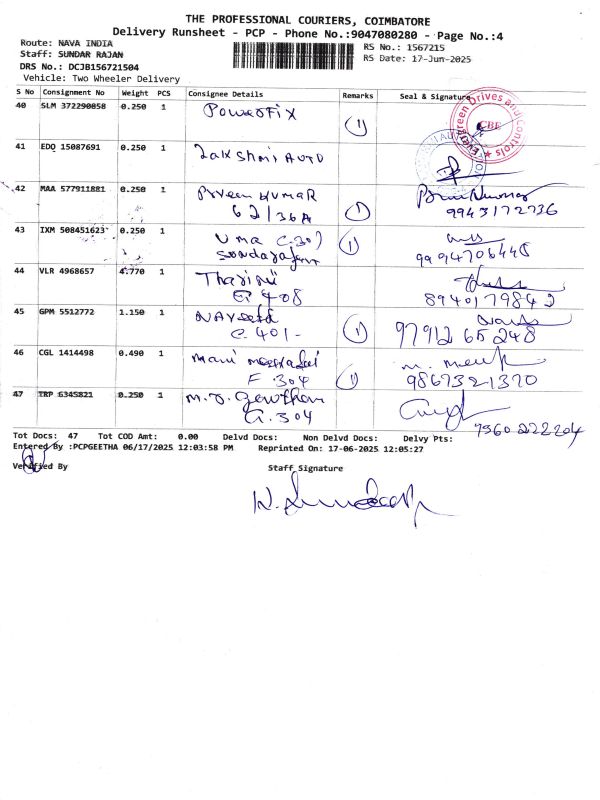 THE PROFESSIONAL COURIERS, COIMBATORE
Delivery Runsheet - PCP - Phone No.:9047080280 - Page No.:4
Route: NAVA INDIA
Staff: SUNDAR RAJAN
DRS No.: DCJB156721504
Vehicle: Two Wheeler Delivery
RS No.: 1567215
RS Date: 17-Jun-2025
S No Consignment No Weight PCS Consignee Details Remarks Seal & Signature
40 SLM 372290858 0.250 1 PowerFix (1)
Evergreen Drives and Controls CBE
41 EDO 15087691 0.250 1 Lakshmi Auto
42 MAA 577911881 0.250 1 Praveen Kumar
62/36A (1) 9943172736
43 IXM 508451623 0.250 1 Uma C.307 (1)
Sundarajan 9994706448
44 VLR 4968657 4.770 1 Tharini
408 8940179842
45 GPM 5512772 1.150 1 Naveetd
C.401- (1) 97912 65 248
46 CGL 1414498 0.490 1 Mani
F.304 (1) 9867321370
47 TRP 6345821 0.250 1 M.S. Gowtham
G.304
7560 222204
Tot Docs: 47 Tot COD Amt: 0.00 Delvd Docs: Non Delvd Docs: Delvy Pts:
Entered By :PCPGEETHA 06/17/2025 12:03:58 PM Reprinted On: 17-06-2025 12:05:27
Verified By Staff Signature